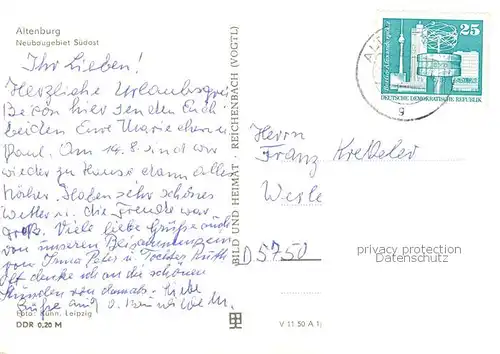 Altenburg
Neubaugebiet Südost
Ihr Lieben!
Herzliche Urlaubsgrüße
von hier senden Euch
beiden Eure Mariechen u.
Paul. Am 14.8. sind wir
wieder zu Hause dann alles
näher. Haben sehr schönes
Wetter die Freude war
groß. Viele liebe Grüße auch
von unseren
von Irma Peter u. Tochter Ruth
Oft denke ich an die schönen
Stunden von damals. Liebe
Grüße auch
Foto: Kühn, Leipzig
DDR 0,20 M
BILD UND HEIMAT · REICHENBACH (VOGTL)
V 11 50 A 1
25
Berlin Alexanderplatz
DEUTSCHE DEMOKRATISCHE REPUBLIK
g
Herrn
Franz
D5750
privacy protection
Datenschutz